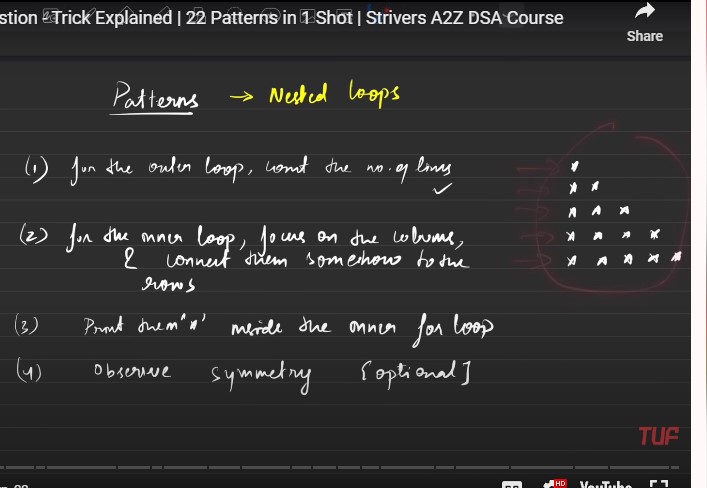 stion - Trick Explained | 22 Patterns in 1 Shot | Strivers A2Z DSA Course
Share
Patterns → Nested loops
(1) for the outer loop, count the no. of lines
(2) for the inner loop, focus on the columns,
& connect them somehow to the
rows
(3) Print them '*' inside the inner for loop
(4) Observe symmetry [optional]
TUF
HD YouTube